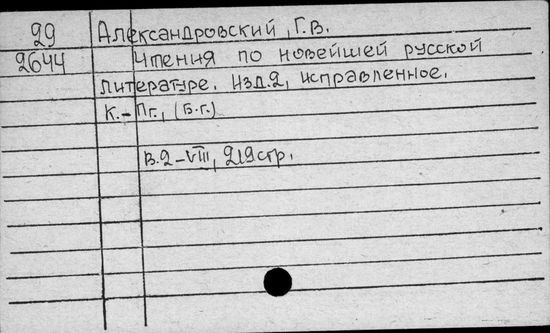 29 Александровский, Г.В.
2644 Чтения по новейшей русской
литературе. Изд.2, исправленное.
К.-Пг., (Б.г.)
В.2-VIII, 219стр.